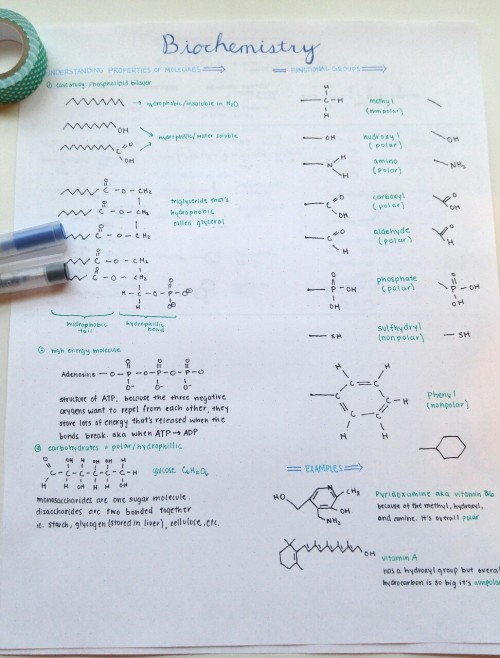 Biochemistry
UNDERSTANDING PROPERTIES OF MOLECULES
① case study: phospholipid bilayer
→ hydrophobic/insoluble in H₂O
OH
hydrophillic/water soluble
C O
OH
O
C - O - CH₂
O
C - O - CH₂
O
C - O - CH₂
triglyceride that's
hydrophobic
called glycerol
O
C - O - CH₂
O
C - O - CH₂
H - C - O - P - O⊖
hydrophobic
tail
hydrophillic
head
② high energy molecule
O O O
Adenosine - O - P - O - P - O - P - O
O⁻ O⁻ O⁻
structure of ATP. because the three negative
oxygens want to repel from each other, they
store lots of energy that's released when the
bonds break. aka when ATP → ADP
③ carbohydrates = polar/hydrophillic
C - C - C - C - C - C - H
glucose C₆H₁₂O₆
monosaccharides are one sugar molecule.
disaccharides are two bonded together
ie. starch, glycogen (stored in liver), cellulose, etc.
FUNCTIONAL GROUPS
H
C - H
H
methyl
(nonpolar)
OH
hydroxyl
(polar)
OH
N H
H
amino
(polar)
NH₂
C O
OH
carboxyl
(polar)
O
OH
C O
H
aldehyde
(polar)
O
H
O
P - OH
OH
phosphate
(polar)
O
P - OH
OH
SH
sulfhydryl
(nonpolar)
SH
H H
C = C
C C - H
C - C
H H
Phenyl
(nonpolar)
EXAMPLES
HO N CH₃
OH
NH₂
Pyridoxumine aka vitamin B6
because of the methyl, hydroxyl,
and amine. it's overall polar
OH
vitamin A
has a hydroxyl group but overall
hydrocarbon is so big it's nonpolar